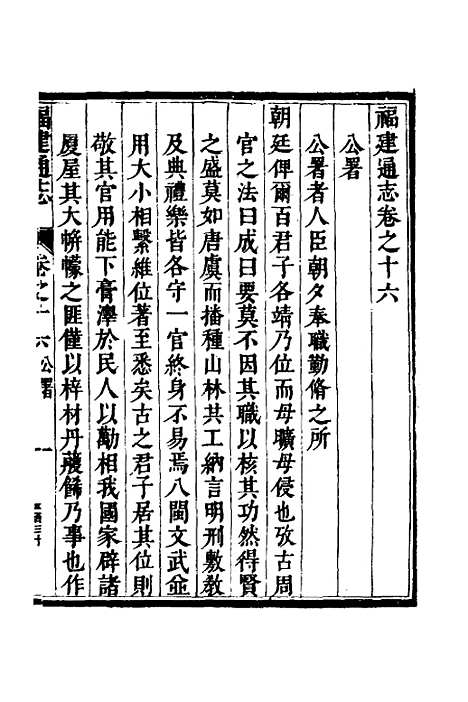 福建通志卷之十六
公署
公署者人臣朝夕奉職勤脩之所
朝廷俾爾百君子各靖乃位而毋曠毋侵也攷古周
官之法曰成曰要莫不因其職以核其功然得賢
之盛莫如唐虞而播種山林共工納言明刑敷敎
及典禮樂皆各守一官終身不易焉八閩文武並
用大小相繫維位著至悉矣古之君子居其位則
敬其官用能下膏澤於民人以勷相我國家辟諸
厦屋其大帡幪之匪僅以梓材丹雘餙乃事也作
福建通志
卷之十六公署
一